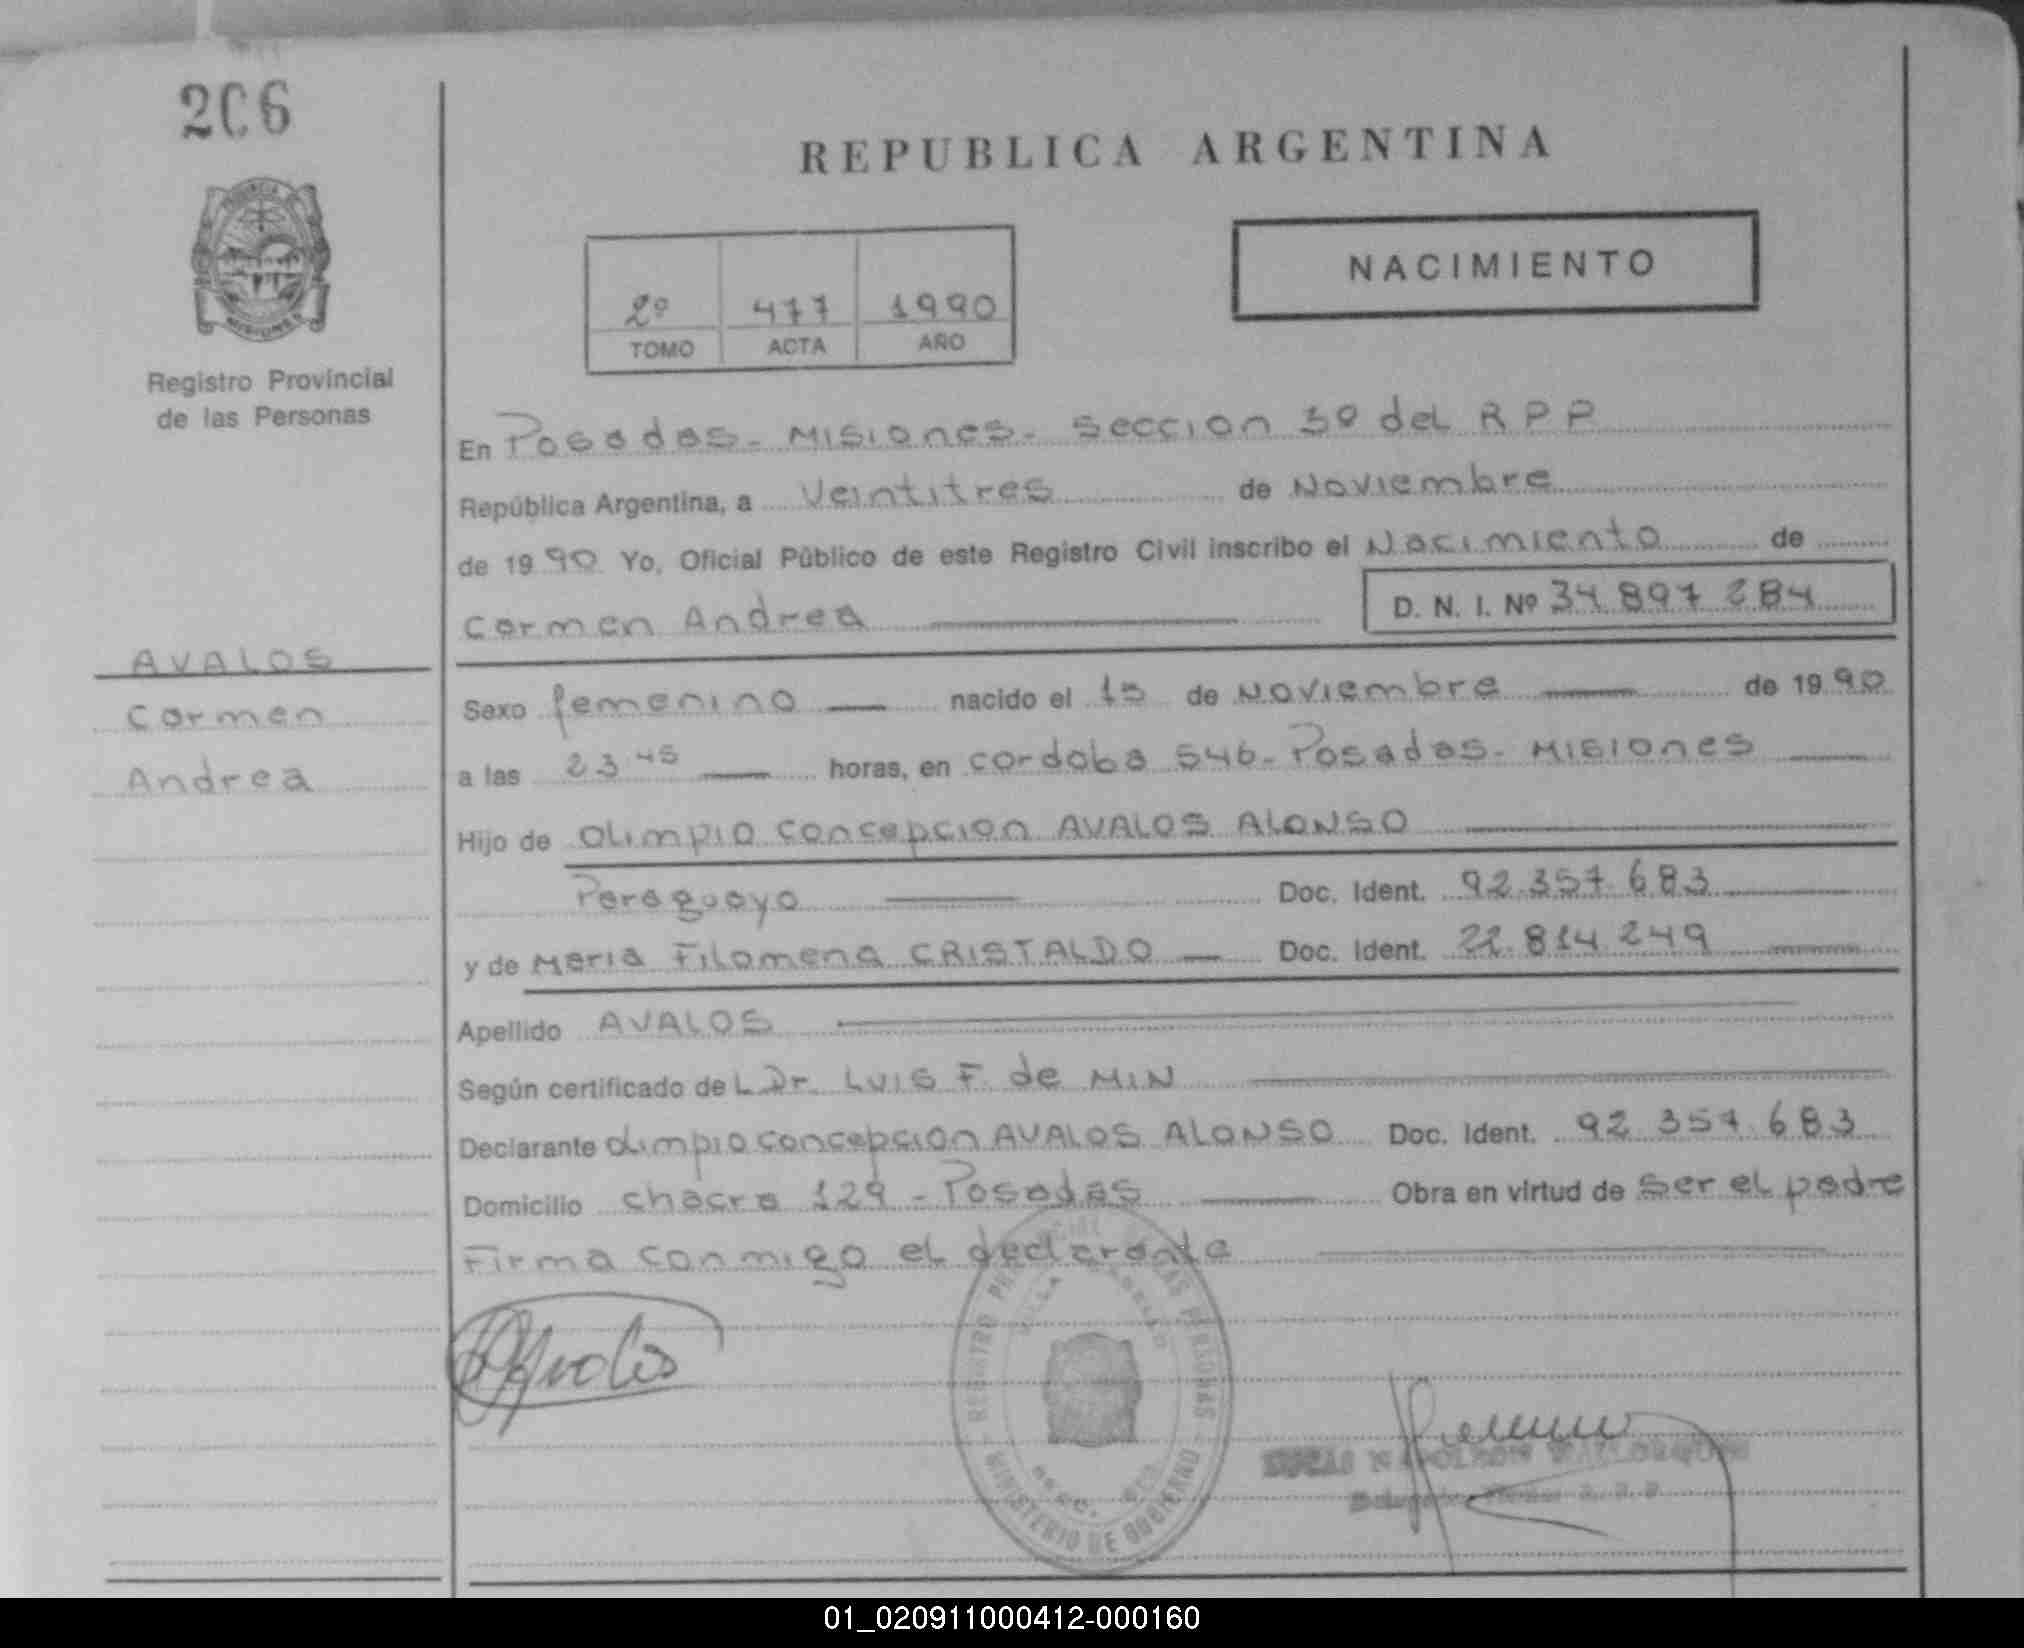 206
REPUBLICA ARGENTINA
NACIMIENTO
2º 477 1990
TOMO ACTA AÑO
PROVINCIA
MISIONES
Registro Provincial
de las Personas
En Posadas - Misiones - Seccion 3º del R P P
República Argentina, a Veintitres de Noviembre
de 1990 Yo, Oficial Público de este Registro Civil inscribo el Nacimiento de
Carmen Andrea D. N. I. Nº 34.897.284
AVALOS
Carmen
Andrea
Sexo femenino nacido el 15 de Noviembre de 1990
a las 23 45 horas, en cordoba 546 - Posadas - Misiones
Hijo de Olimpio Concepcion AVALOS ALONSO
Paraguayo Doc. Ident. 92.357.683
y de Maria Filomena CRISTALDO Doc. Ident. 22.814.249
Apellido AVALOS
Según certificado de L Dr. LUIS F. de MIN
Declarante Olimpio Concepcion AVALOS ALONSO Doc. Ident. 92.357.683
Domicilio chacra 129 - Posadas Obra en virtud de ser el padre
Firma conmigo el declarante
REGISTRO PERSONAS
MINISTERIO DE GOBIERNO
01_020911000412-000160